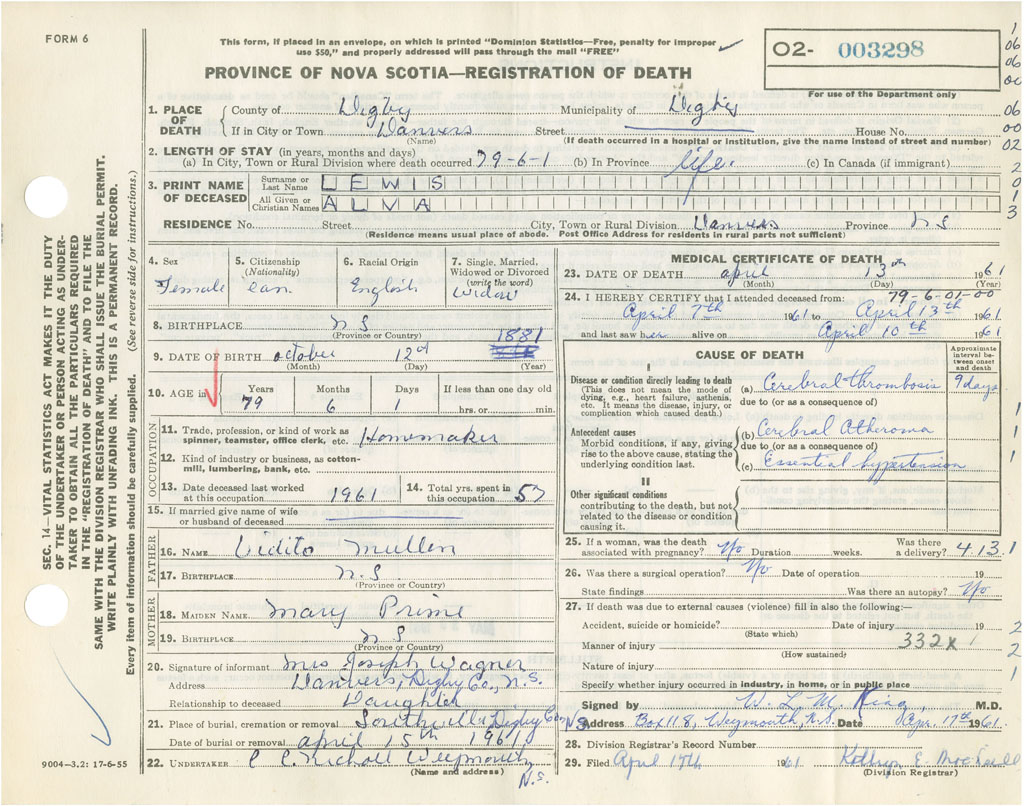 FORM 6
This form, if placed in an envelope, on which is printed "Dominion Statistics—Free, penalty for improper
use $50," and properly addressed will pass through the mail "FREE"
O2- 003298
For use of the Department only
PROVINCE OF NOVA SCOTIA—REGISTRATION OF DEATH
1. PLACE OF DEATH County of Digby Municipality of Digby
If in City or Town Danvers Street House No.
(Name) (If death occurred in a hospital or institution, give the name instead of street and number)
2. LENGTH OF STAY (in years, months and days)
(a) In City, Town or Rural Division where death occurred 79-6-1 (b) In Province life. (c) In Canada (if immigrant)
3. PRINT NAME OF DECEASED Surname or Last Name LEWIS
All Given or Christian Names ALVA
RESIDENCE No. Street City, Town or Rural Division Danvers Province N S
(Residence means usual place of abode. Post Office Address for residents in rural parts not sufficient)
4. Sex Female
5. Citizenship (Nationality) Can.
6. Racial Origin English
7. Single, Married, Widowed or Divorced (write the word) Widow
8. BIRTHPLACE N S
(Province or Country)
9. DATE OF BIRTH October 12th 1881
(Month) (Day) (Year)
10. AGE in Years 79 Months 6 Days 1 If less than one day old hrs. or min.
OCCUPATION
11. Trade, profession, or kind of work as spinner, teamster, office clerk, etc. Homemaker
12. Kind of industry or business, as cotton-mill, lumbering, bank, etc.
13. Date deceased last worked at this occupation 1961
14. Total yrs. spent in this occupation 57
15. If married give name of wife or husband of deceased
FATHER
16. NAME Vidito Mullen
17. BIRTHPLACE N.S
(Province or Country)
MOTHER
18. MAIDEN NAME Mary Prime
19. BIRTHPLACE N S
(Province or Country)
20. Signature of informant Mrs Joseph Wagner
Address Danvers, Digby Co., N.S.
Relationship to deceased Daughter
21. Place of burial, cremation or removal Southville Digby Co N.S
Date of burial or removal April 15th 1961
22. UNDERTAKER C C Nicholl Weymouth N.S.
(Name and address)
9004—3.2: 17-6-55
MEDICAL CERTIFICATE OF DEATH
23. DATE OF DEATH April 13th 1961
(Month) (Day) (Year)
79-6-01-00
24. I HEREBY CERTIFY that I attended deceased from:
April 7th 1961 to April 13th 1961
and last saw her alive on April 10th 1961
CAUSE OF DEATH
Approximate interval between onset and death
I
Disease or condition directly leading to death
(This does not mean the mode of dying, e.g., heart failure, asthenia, etc. It means the disease, injury, or complication which caused death.)
(a) Cerebral thrombosis 9 days
due to (or as a consequence of)
Antecedent causes
Morbid conditions, if any, giving rise to the above cause, stating the underlying condition last.
(b) Cerebral Atheroma
due to (or as a consequence of)
(c) Essential hypertension
II
Other significant conditions
contributing to the death, but not related to the disease or condition causing it.
25. If a woman, was the death associated with pregnancy? No Duration weeks. Was there a delivery? 4.13.1
26. Was there a surgical operation? No Date of operation 19
State findings Was there an autopsy? No
27. If death was due to external causes (violence) fill in also the following:—
Accident, suicide or homicide? Date of injury 19
(State which)
Manner of injury 332X
(How sustained)
Nature of injury
Specify whether injury occurred in industry, in home, or in public place
Signed by W. L. M. King M.D.
Address Box 118, Weymouth, N.S. Date Apr. 17th 1961
28. Division Registrar's Record Number
29. Filed April 17th 1961 Kathryn E.
(Division Registrar)
SEC. 14—VITAL STATISTICS ACT MAKES IT THE DUTY
OF THE UNDERTAKER OR PERSON ACTING AS UNDER-
TAKER TO OBTAIN ALL THE PARTICULARS REQUIRED
IN THE "REGISTRATION OF DEATH" AND TO FILE THE
SAME WITH THE DIVISION REGISTRAR WHO SHALL ISSUE THE BURIAL PERMIT.
WRITE PLAINLY WITH UNFADING INK. THIS IS A PERMANENT RECORD.
Every item of information should be carefully supplied. (See reverse side for instructions.)
1
06
06
00
06
00
02
2
0
1
3
1
1
1
1
2
2
1